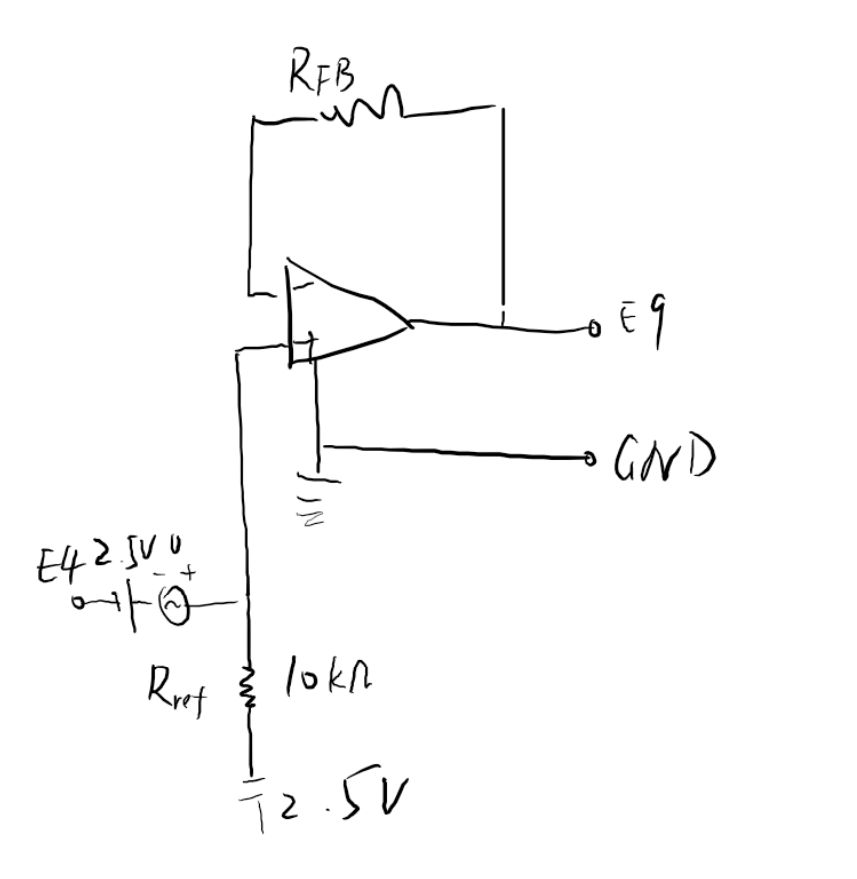 R_FB
−
E9
+
GND
E4 2.5V υ
− +
~
R_ref 10kΩ
2.5V